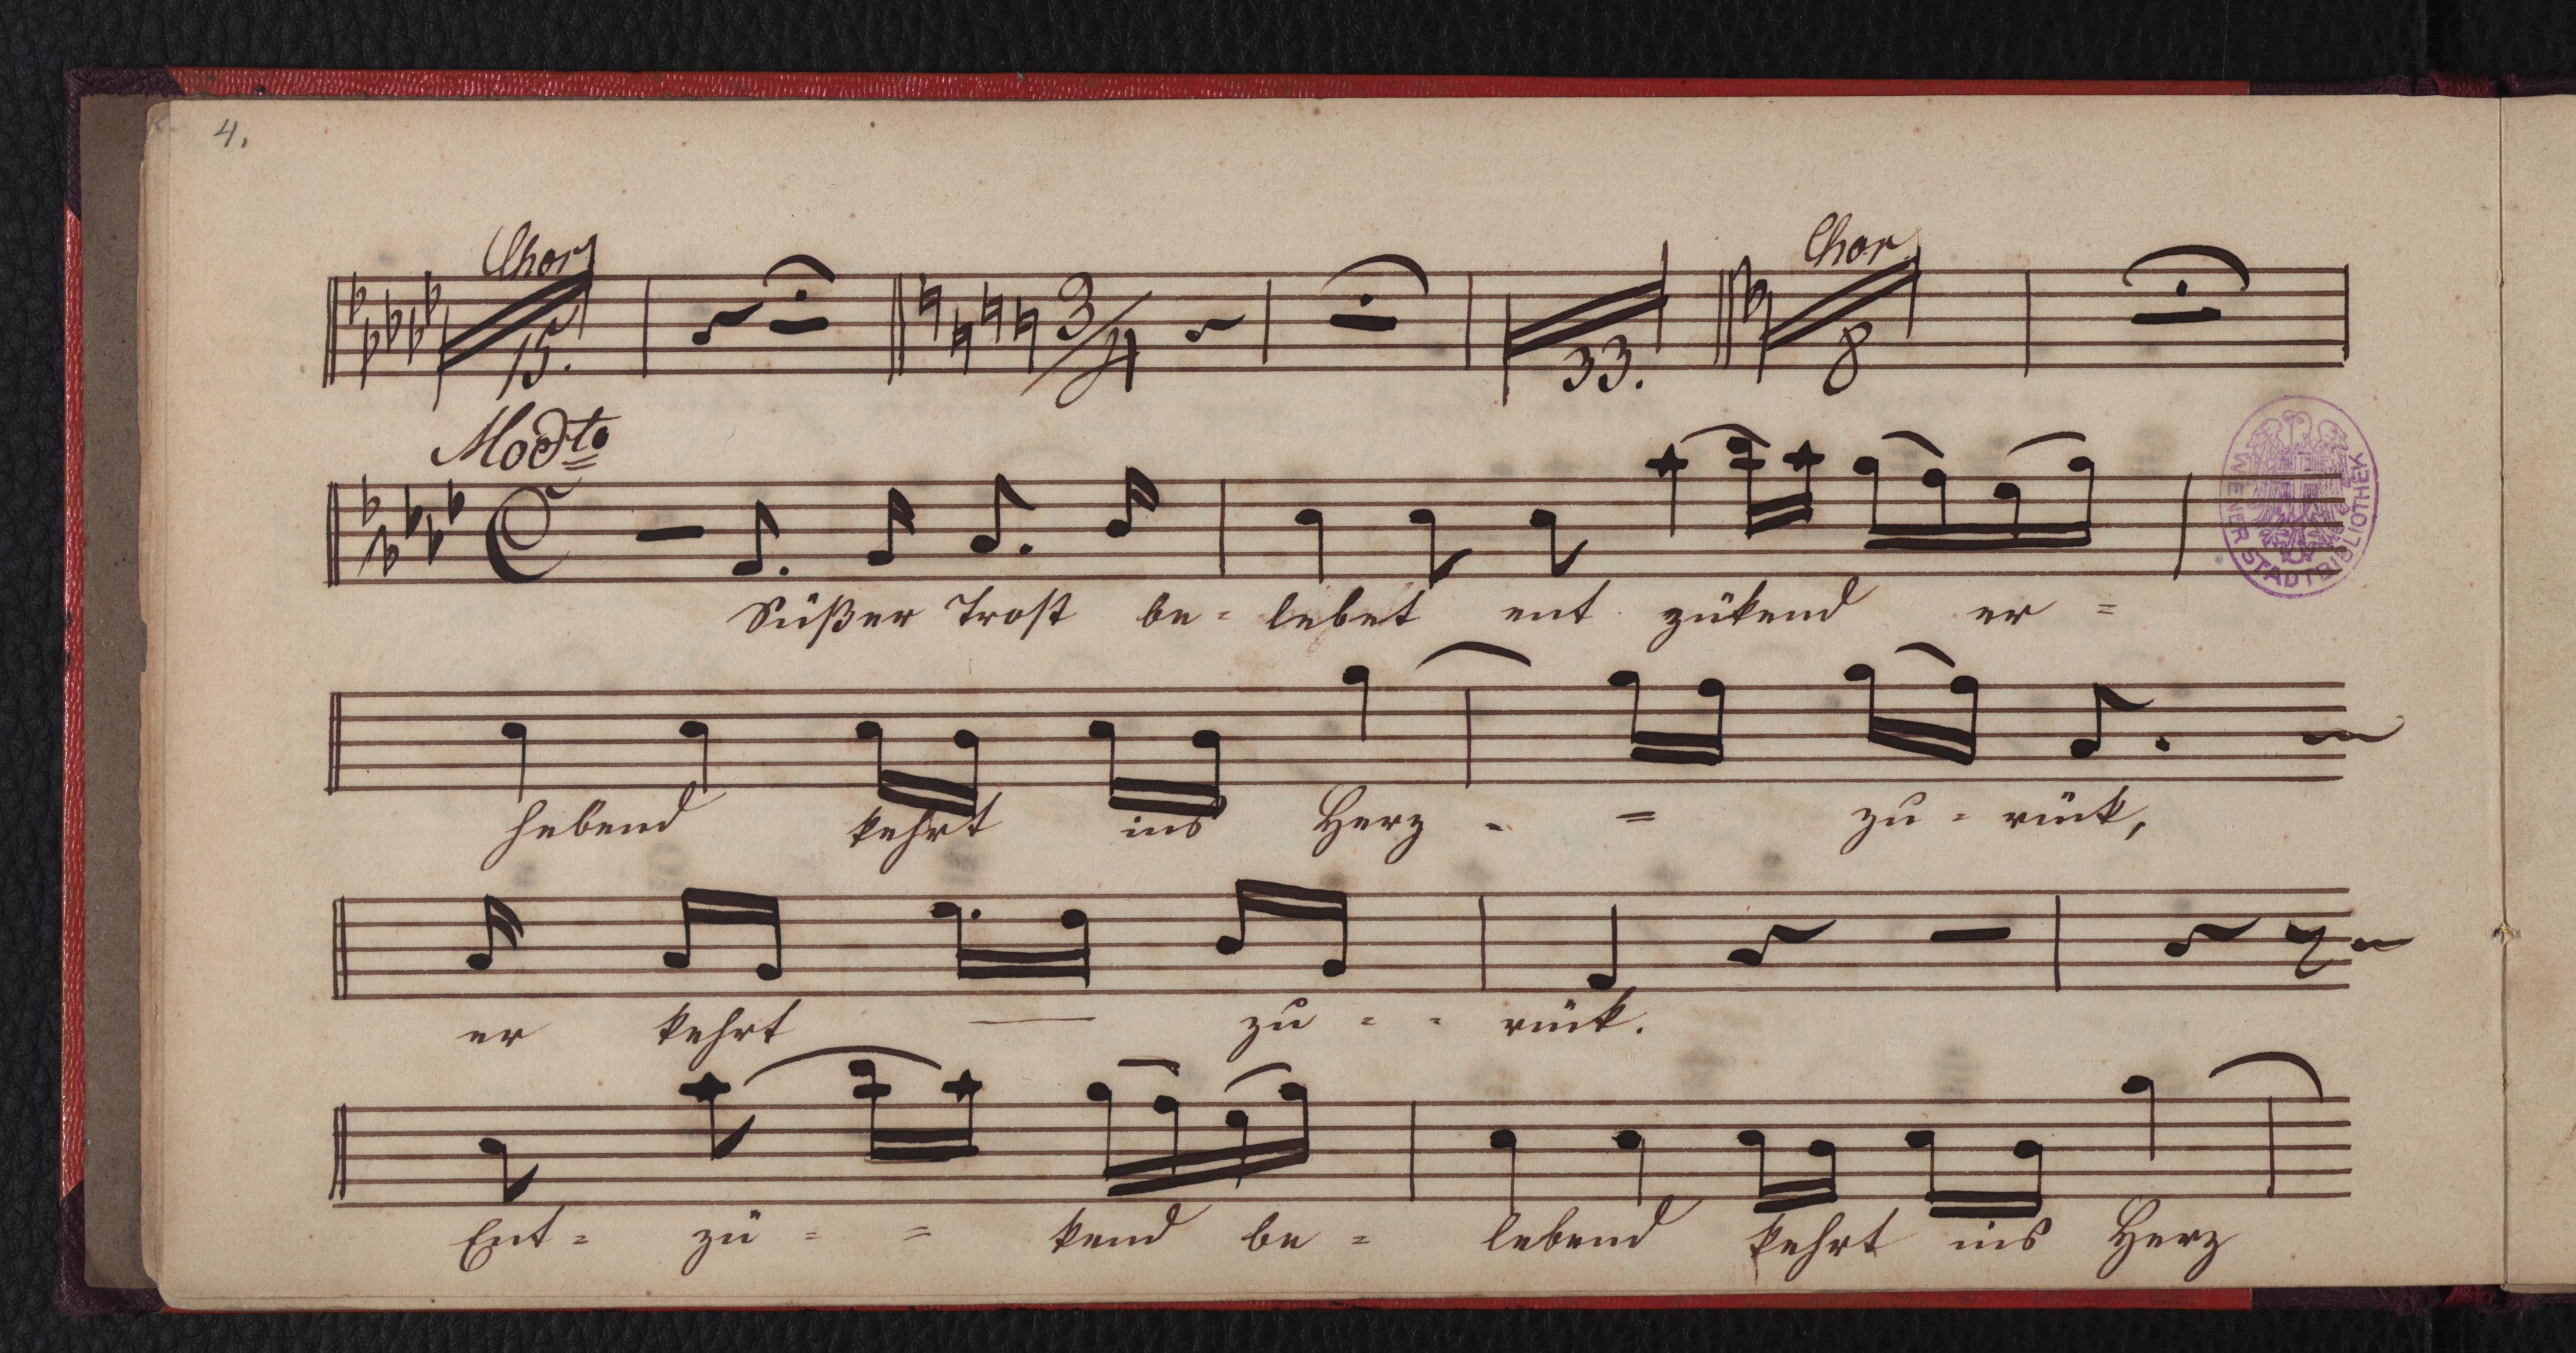 4.
Chor Chor
3/4
15. 33. 8
Modto
Süßer Trost be- lebet ent zükend er =
hebend kehrt ins Herz - = zu - rück,
er kehrt — zu = - rück.
Ent = zü = = kend be = lebend kehrt ins Herz
WIENER STADTBIBLIOTHEK